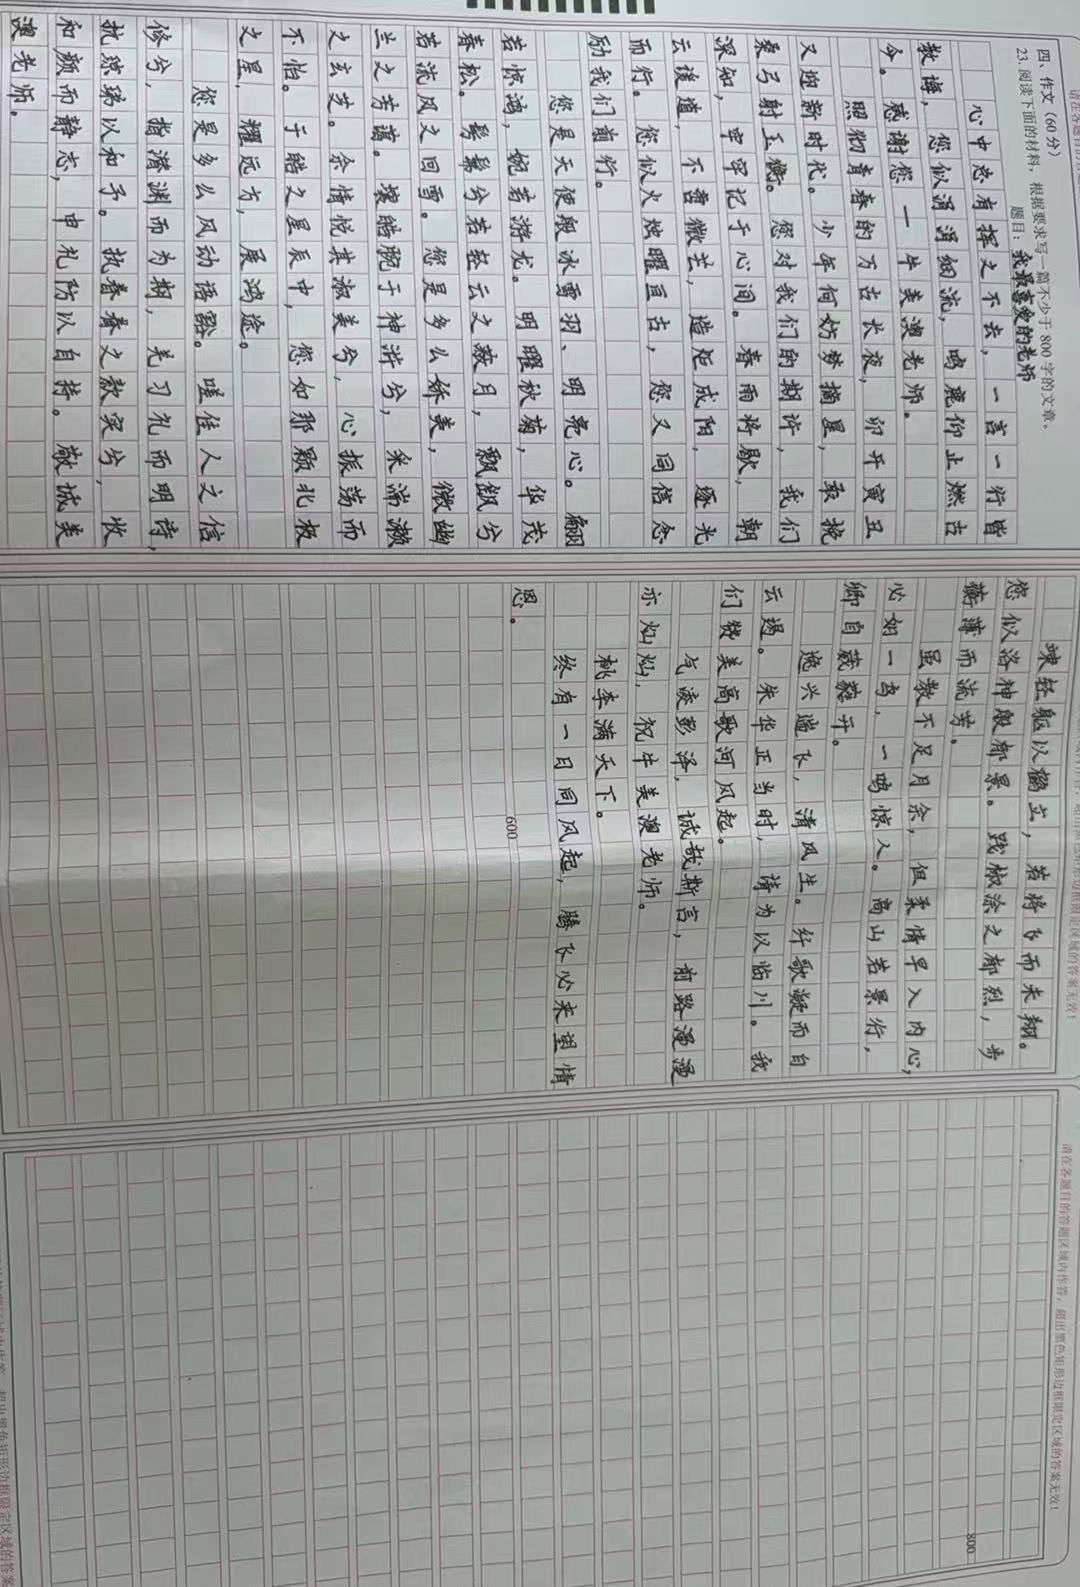 四、作文（60 分）
23. 阅读下面的材料，根据要求写一篇不少于 800 字的文章。
题目：我最喜爱的老师
心中总有挥之不去，一言一行皆
教诲，您似涓涓细流，鸣鹿仰止燃古
今。感谢您——牛美澳老师。
照彻青春的万古长夜，卯开寅丑
又迎新时代。少年何妨梦摘星，敢挽
桑弓射玉衡。您对我们的期许，我们
深知，牢牢记于心间。春雨将歇，朝
云叆叇，不啻微芒，造炬成阳，逐光
而行。您似火烛曜亘古，您又同信念
励我们前行。
您是天使般冰雪羽、明亮心。翩
若惊鸿，婉若游龙。明曜秋菊，华茂
春松。髣髴兮若轻云之蔽月，飘飖兮
若流风之回雪。您是多么娇美，微幽
兰之芳蔼。攘皓腕于神浒兮，采湍濑
之玄芝。余情悦其淑美兮，心振荡而
不怡。于皓之星辰中，您如那颗北极
之星，耀远方，展鸿途。
您是多么风动语豁。嗟佳人之信
修兮，指潜渊而为期，羌习礼而明诗，
抗琼珶以和予。执眷眷之款实兮，收
和颜而静志，申礼防以自持。敬诚美
澳老师。
竦轻躯以鹤立，若将飞而未翔。
您似洛神般郁景。践椒涂之郁烈，步
蘅薄而流芳。
虽教不足月余，但柔情早入内心，
必如一鸟，一鸣惊人。高山若景行，
卿自葳蕤开。
逸兴遄飞，清风生。纤歌凝而自
云遏。朱华正当时，请为以临川。我
们犹美高歌河风起。
气凌彭泽，诚哉斯言，前路漫漫
亦灿灿，祝牛美澳老师。
桃李满天下。
终有一日同风起，腾飞必来望情
恩。
600
800
请在各题目的答题区域内作答，超出黑色矩形边框限定区域的答案无效！